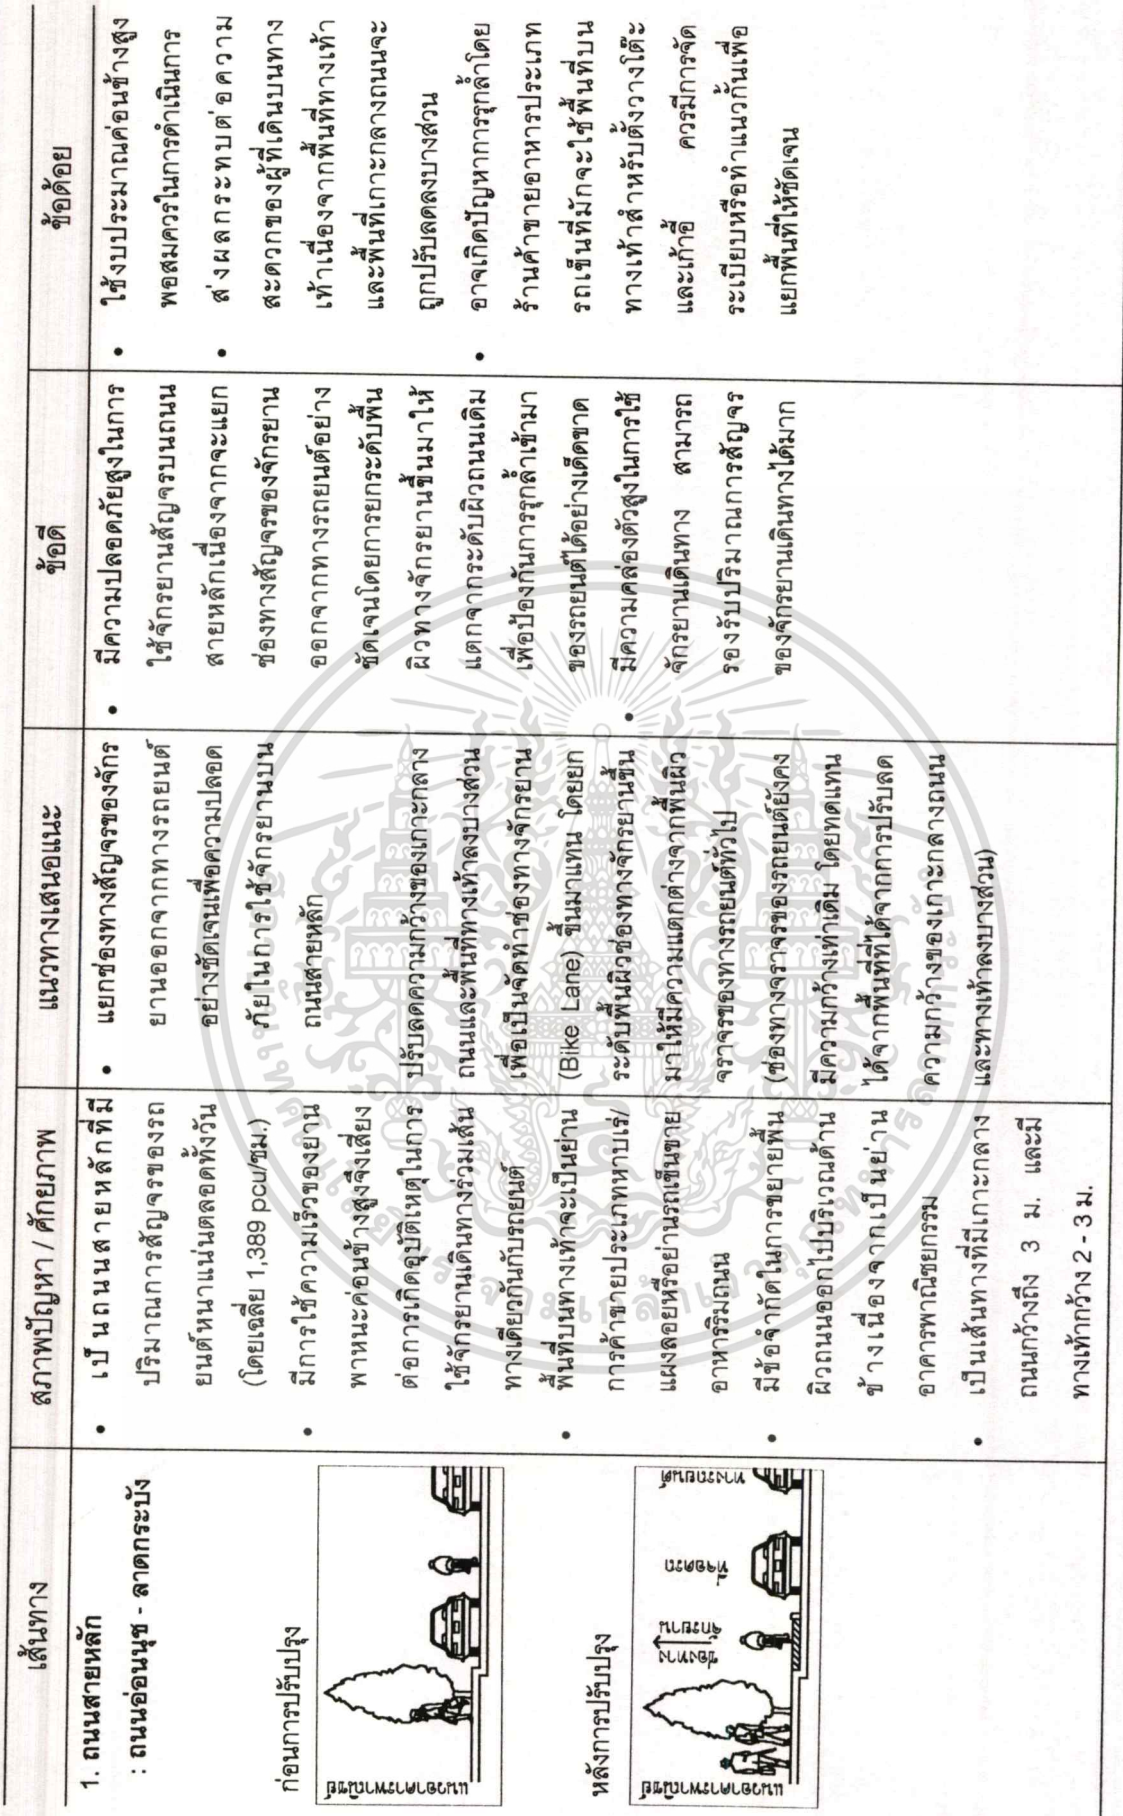 เส้นทาง
สภาพปัญหา / ศักยภาพ
แนวทางเสนอแนะ
ข้อดี
ข้อด้อย
1. ถนนสายหลัก
: ถนนอ่อนนุช - ลาดกระบัง
ก่อนการปรับปรุง
แนวอาคารพาณิชย์
หลังการปรับปรุง
แนวอาคารพาณิชย์
ช่องทาง
จักรยาน
ที่จอดรถ
ทางรถยนต์
• เป็นถนนสายหลักที่มี
ปริมาณการสัญจรของรถ
ยนต์หนาแน่นตลอดทั้งวัน
(โดยเฉลี่ย 1,389 pcu/ชม.)
• มีการใช้ความเร็วของยาน
พาหนะค่อนข้างสูงจึงเสี่ยง
ต่อการเกิดอุบัติเหตุในการ
ใช้จักรยานเดินทางร่วมเส้น
ทางเดียวกันกับรถยนต์
• พื้นที่บนทางเท้าจะเป็นย่าน
การค้าขายประเภทหาบเร่/
แผงลอยหรือย่านรถเข็นขาย
อาหารริมถนน
• มีข้อจำกัดในการขยายพื้น
ผิวถนนออกไปบริเวณด้าน
ข้างเนื่องจากเป็นย่าน
อาคารพาณิชยกรรม
• เป็นเส้นทางที่มีเกาะกลาง
ถนนกว้างถึง 3 ม. และมี
ทางเท้ากว้าง 2 - 3 ม.
• แยกช่องทางสัญจรของจักร
ยานออกจากทางรถยนต์
อย่างชัดเจนเพื่อความปลอด
ภัยในการใช้จักรยานบน
ถนนสายหลัก
ปรับลดความกว้างของเกาะกลาง
ถนนและพื้นที่ทางเท้าลงบางส่วน
เพื่อเป็นจัดทำช่องทางจักรยาน
(Bike Lane) ขึ้นมาแทน โดยยก
ระดับพื้นผิวช่องทางจักรยานขึ้น
มาให้มีความแตกต่างจากพื้นผิว
จราจรของทางรถยนต์ทั่วไป
(ช่องทางจราจรของรถยนต์ยังคง
มีความกว้างเท่าเดิม โดยทดแทน
ได้จากพื้นที่ที่ได้จากการปรับลด
ความกว้างของเกาะกลางถนน
และทางเท้าลงบางส่วน)
• มีความปลอดภัยสูงในการ
ใช้จักรยานสัญจรบนถนน
สายหลักเนื่องจากจะแยก
ช่องทางสัญจรของจักรยาน
ออกจากทางรถยนต์อย่าง
ชัดเจนโดยการยกระดับพื้น
ผิวทางจักรยานขึ้นมาให้
แตกจากระดับผิวถนนเดิม
เพื่อป้องกันการรุกล้ำเข้ามา
ของรถยนต์ได้อย่างเด็ดขาด
• มีความคล่องตัวสูงในการใช้
จักรยานเดินทาง สามารถ
รองรับปริมาณการสัญจร
ของจักรยานเดินทางได้มาก
• ใช้งบประมาณค่อนข้างสูง
พอสมควรในการดำเนินการ
• ส่งผลกระทบต่อความ
สะดวกของผู้ที่เดินบนทาง
เท้าเนื่องจากพื้นที่ทางเท้า
และพื้นที่เกาะกลางถนนจะ
ถูกปรับลดลงบางส่วน
• อาจเกิดปัญหาการรุกล้ำโดย
ร้านค้าขายอาหารประเภท
รถเข็นที่มักจะใช้พื้นที่บน
ทางเท้าสำหรับตั้งวางโต๊ะ
และเก้าอี้ ควรมีการจัด
ระเบียบหรือทำแนวกั้นเพื่อ
แยกพื้นที่ให้ชัดเจน